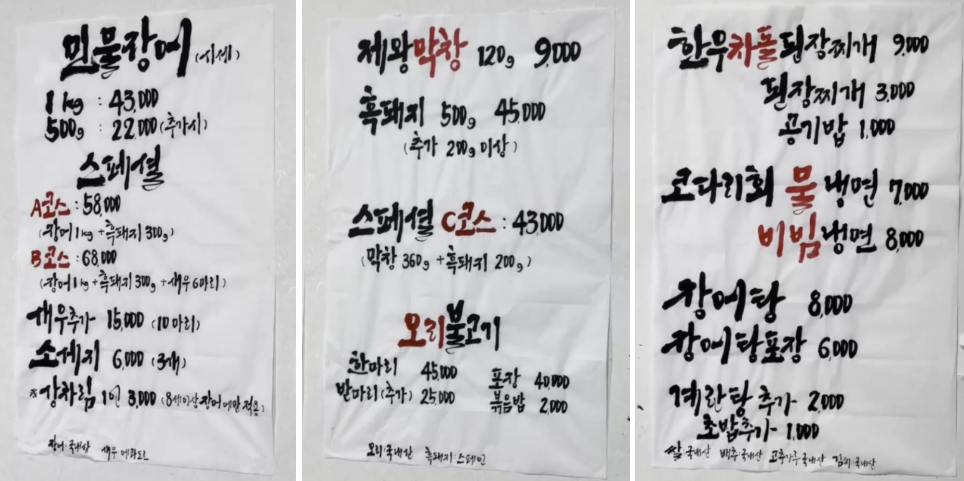 민물장어 (시세)
1kg : 43,000
500g : 22,000 (추가시)
스페셜
A코스 : 58,000
(장어 1kg + 흑돼지 300g)
B코스 : 68,000
(장어 1kg + 흑돼지 300g + 새우 6마리)
새우추가 15,000 (10마리)
소세지 6,000 (3개)
※상차림 1인 3,000 (8세이상 장어에만 적용)
장어:국내산 새우:에콰도르
제왕막창 120g 9,000
흑돼지 500g 45,000
(추가 200g 이상)
스페셜 C코스 : 43,000
(막창 360g + 흑돼지 200g)
오리불고기
한마리 45,000 포장 40,000
반마리(추가) 25,000 볶음밥 2,000
오리:국내산 흑돼지:스페인
한우차돌된장찌개 9,000
된장찌개 3,000
공기밥 1,000
코다리회 물냉면 7,000
비빔냉면 8,000
장어탕 8,000
장어탕포장 6,000
계란탕 추가 2,000
초밥추가 1,000
쌀:국내산 배추:국내산 고추가루:국내산 김치:국내산